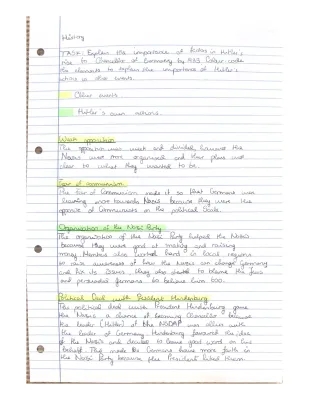 History
TASK: Explain the importance of factors in Hitler's
rise to Chancellor of Germany by 1933 Colour code
the elements to explain the importance of Hitler's
actions or other events.
Other events
Hitler's own actions.
Weak opposition
The opposition was weak and divided however the
Nazis were more organised and their plans were
clear to what they wanted to be.
Fear of communism
The fear of Communism made it so that Germans was
leaning more towards Nazis because they were the
opposite of Communists on the political scale.
Organisation of the Nazi Party
The organisation of the Nazi Party helped the Nazis
because they were good at making and raising
money. Members also worked hard in local regions
to raise awareness of how the Nazis can change Germany
and fix its issues. They also the Jews
and persuaded germans to believe him too.
Political Deal with President Hindenburg
The political deal with President Hindenburg gave
the Nazis a chance of becoming Chancellor because
the leader (Hitler) of the NSDAP was allies with
the leader of Germany. Hindenburg favoured the idea
of the Nazis and decided to leave good word on their
behalf. This made the Germans have more faith in
the Nazi Party because their President liked them.